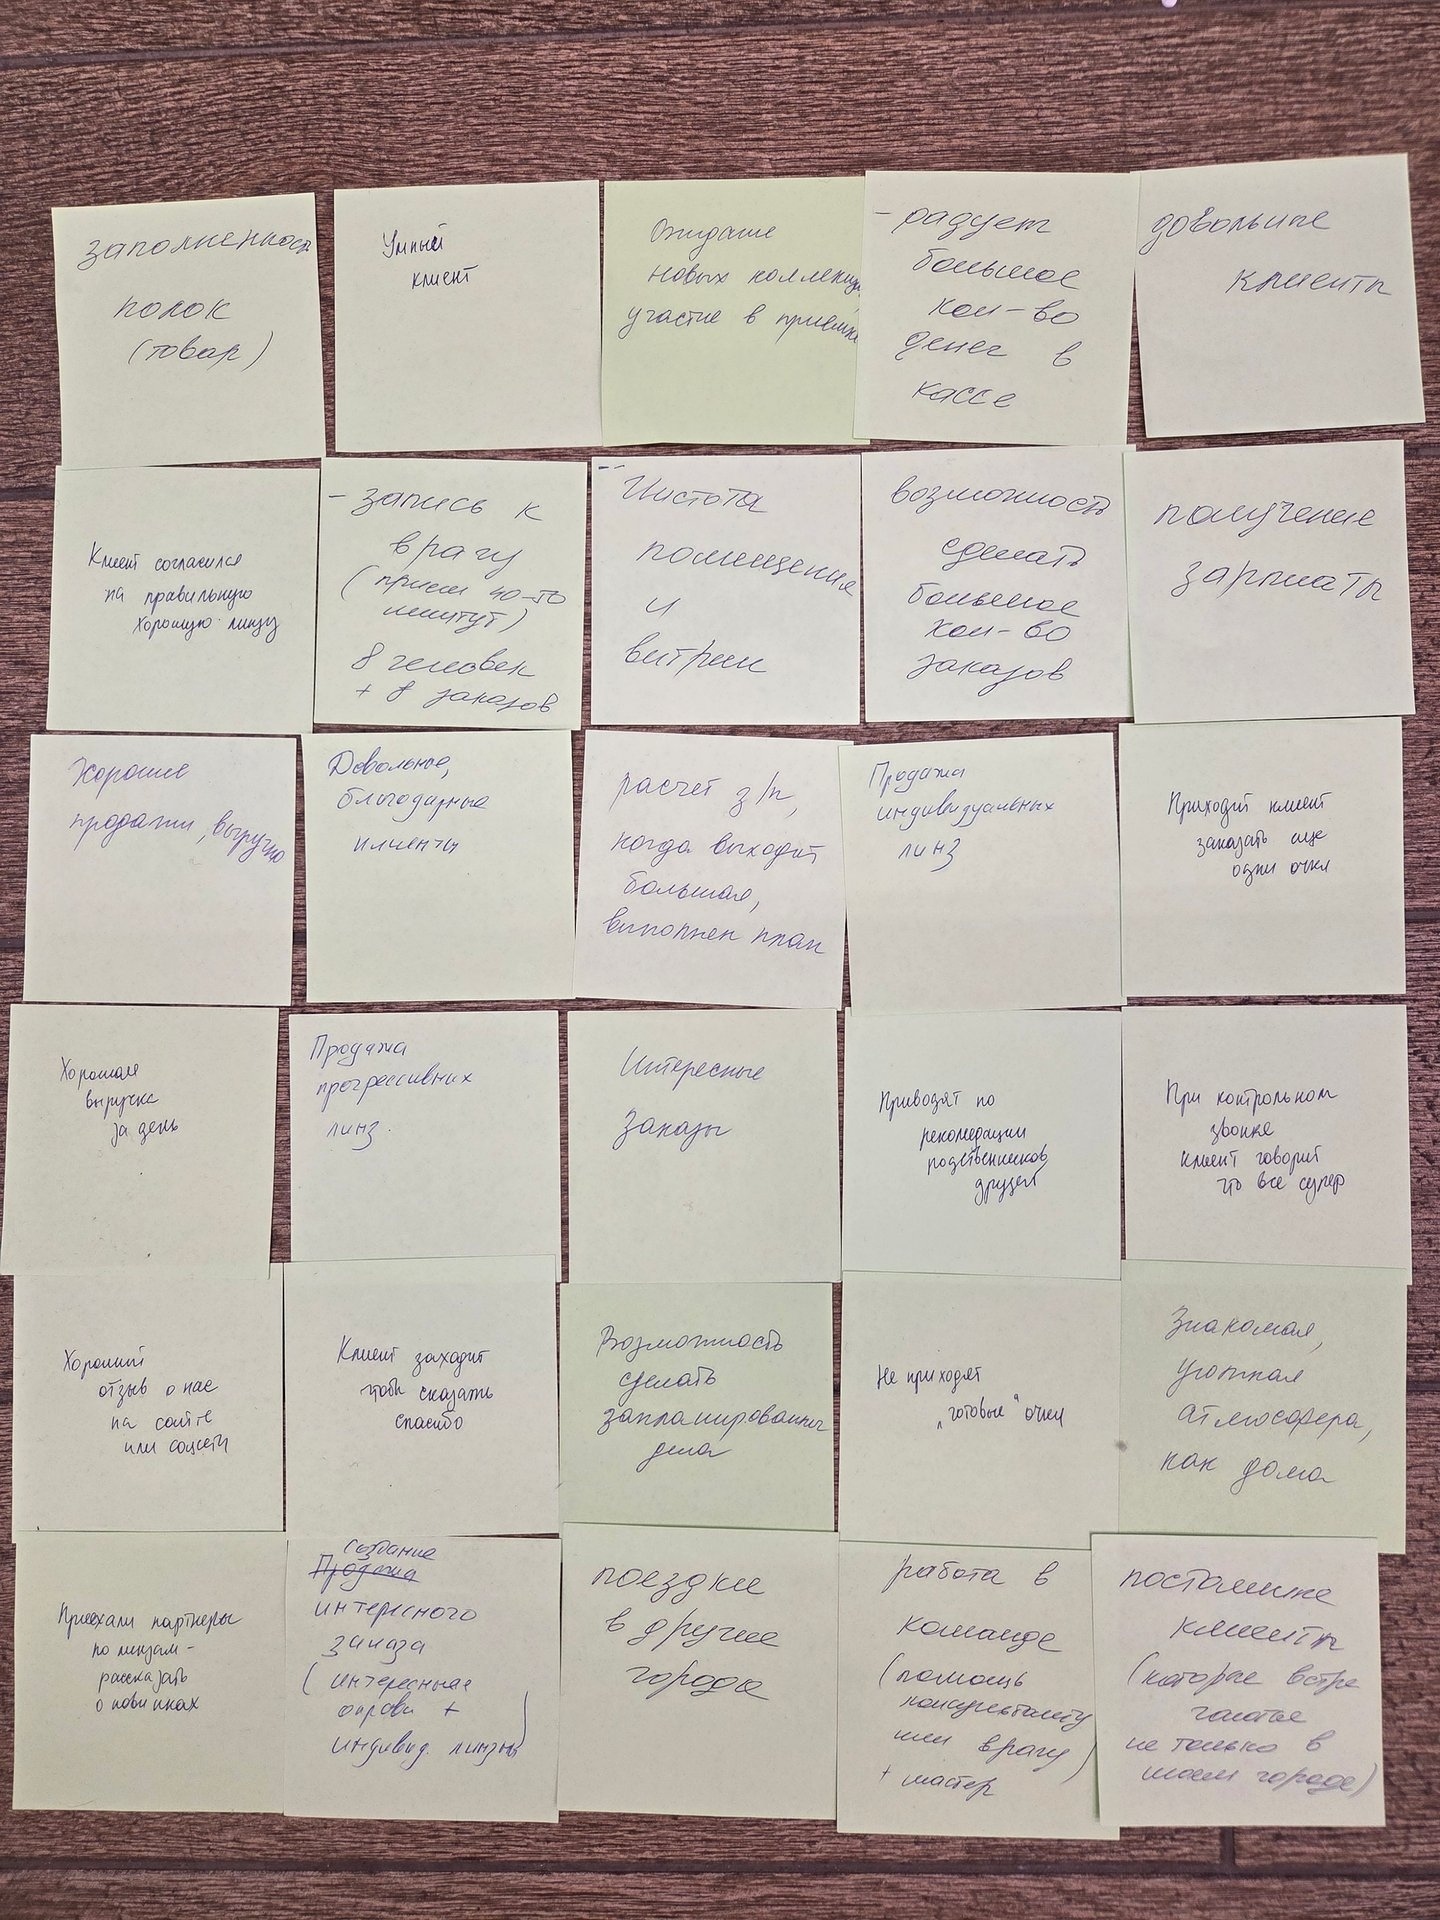 заполненность
полок
(товар)
Умный
клиент
Ожидание
новых коллекций
участие в приёмке
- радует
большое
кол-во
денег в
кассе
довольные
клиенты
Клиент согласился
на правильную
хорошую линзу
- запись к
врачу
(прием 40-то
минут)
8 человек
+ 8 заказов
Чистота
помещения
и
витрин
возможность
сделать
большое
кол-во
заказов
получение
зарплаты
Хорошие
продажи, выручка
Довольные,
благодарные
клиенты
расчет з/п,
когда выходит
большая,
выполнен план
Продажа
индивидуальных
линз
Приходит клиент
заказать еще
одни очки
Хорошая
выручка
за день
Продажа
прогрессивных
линз.
Интересные
заказы
Приводят по
рекомедации
родственников
друзей
При контрольном
звонке
клиент говорит
что все супер
Хороший
отзыв о нас
на сайте
или соцсети
Клиент заходит
чтобы сказать
спасибо
Возможность
сделать
запланированные
дела
Не приходят
„готовые“ очки
Знакомая,
уютная
атмосфера,
как дома
Приехали партнеры
по линзам -
рассказать
о новинках
Создание
Продажа
интересного
заказа
(интересные
оправы +
индивид. линзы)
поездки
в другие
города
работа в
команде
(помощь
консультанту
или врачу)
+ мастер
постоянные
клиенты
(которые встре
чаются
не только в
моем городе)